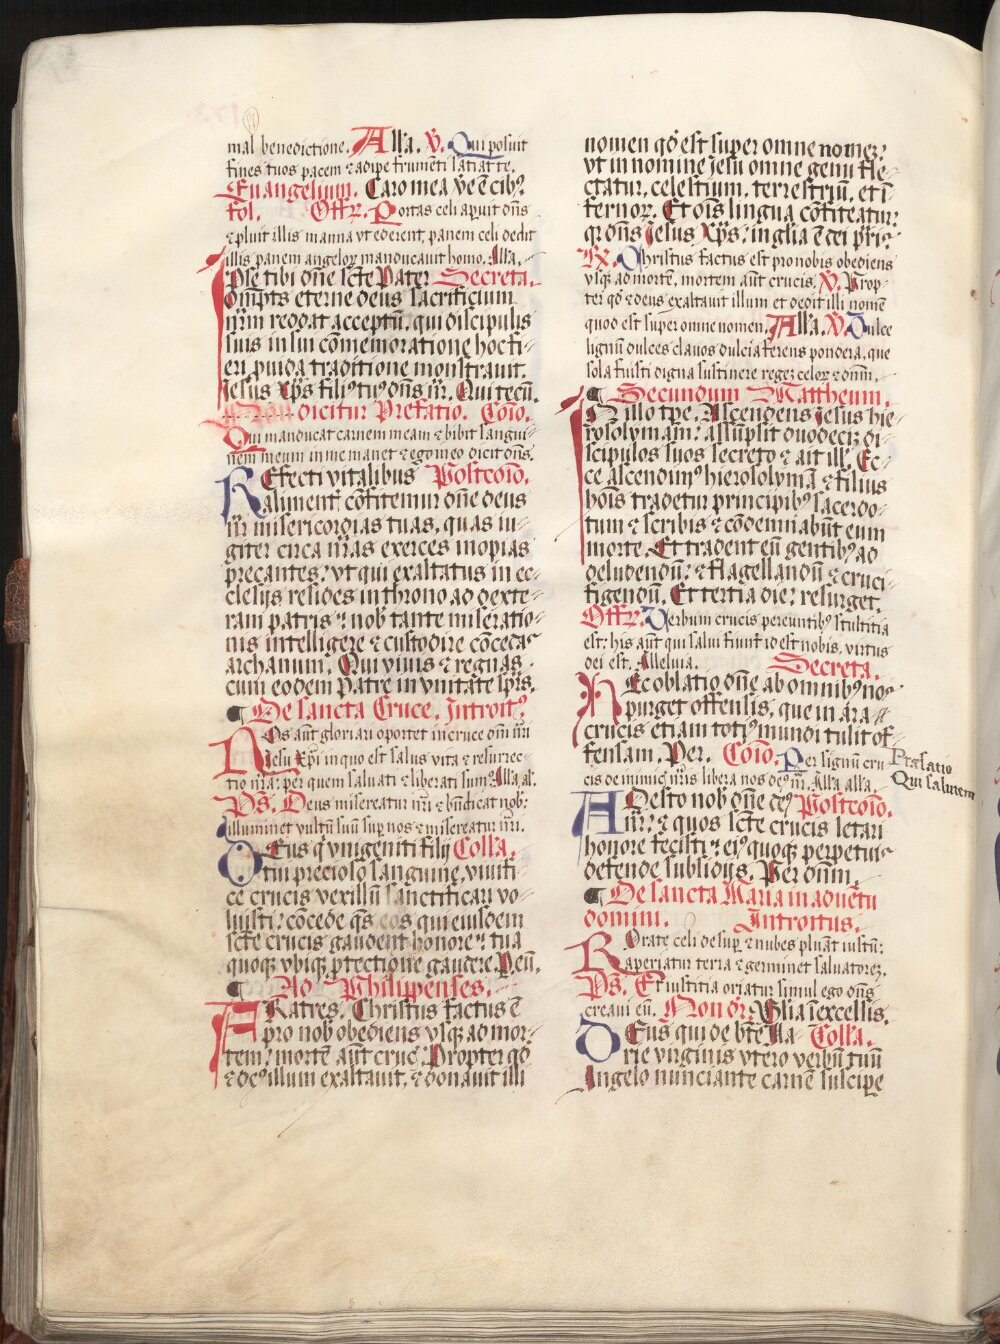 mal benedictione. Allā. v̄. Qui posuit
fines tuos pacem ⁊ adipe frumēti satiat te.
Euangelium. Caro mea v̄e ē cibꝰ.
fol. Offr̄. Portas celi aꝑuit dn̄s
⁊ pluit illis manna vt ederent, panem celi dedit
illis panem angeloꝝ manducauit homo. Alla.
Ipse tibi dn̄e sct̄e Pater Secreta.
omp̄ts eterne deus sacrificium
nr̄m reddat acceptū: qui discipulis
suis in sui cōmemoratione hoc fi-
eri p̄uida traditione monstrauit.
Jesus xp̄s filiꝰ tuꝰ dn̄s nr̄. Qui tecū.
Non dicitur Prefatio. Cōio.
Qui manducat carnem meam ⁊ bibit sangui-
nem meum in me manet ⁊ ego in eo dicit dn̄s.
REfecti vitalibus Postcōio.
aliment̄ cōfitemur dn̄e deus
nr̄ misericordias tuas, quas iu-
giter circa nr̄as exerces inopias
precantes: vt qui exaltatus in ec-
clesijs resides in throno ad dexte-
ram patris: nob̄ tante miseratio-
nis intelligere ⁊ custodire cōcedas
archanum. Qui viuis ⁊ regnas
cum eodem Patre in vnitate sp̄rs.
¶ De sancta Cruce. Introitꝰ
NOs aūt gloriari oportet in cruce dn̄i nr̄i
Jesu Xp̄i in quo est salus vita ⁊ resurrec-
tio nr̄a: per quem saluati ⁊ liberati sumꝰ Alla al.
Ps. Deus misereatur nr̄i ⁊ bn̄dicat nob̄:
illuminet vultū suū suꝑ nos ⁊ misereatur nr̄i.
DEus q̄ vnigeniti filij Colla.
tui precioso sanguine, viuifi-
ce crucis vexillū sanctificari vo-
luisti: cōcede q̄s eos qui eiusdem
scte crucis gaudent honore: tua
quoqꝫ vbiqꝫ ꝓtectione gaudere. P. eū.
¶ Ad Philippenses.
FRatres. Christus factus ē
pro nob̄ obediens vsqꝫ ad mor-
tem: mortē aūt cruc̄. Propter qd̄
⁊ deꝰ illum exaltauit, ⁊ donauit illi
nomen qd̄ est super omne nomeꝫ:
vt in nomine Jesu omne genu fle-
ctatur, celestium, terrestriū, et ī
fernoꝝ. Et ois̄ lingua cōfiteatur:
qꝛ dn̄s Jesus Xp̄s: in gl̄ia ē dei pr̄is.
Rꝫ. Christus factus est pro nobis obediens
vsqꝫ ad mortē, mortem aūt crucis. v̄. Prop-
ter qd̄ ⁊ deus exaltauit illum et dedit illi nomē
quod est super omne nomen. Alla. v̄. Dulce
lignū dulces clauos dulcia ferens pondera, que
sola fuisti digna sustinere regeꝫ celoꝝ ⁊ dn̄m.
¶ Secundum Mattheum.
IN illo tꝑe. Ascendens Jesus hie-
rosolymam: assūpsit duodeciꝫ di-
scipulos suos secreto ⁊ ait ill̄. Ec-
ce ascendimꝰ hierosolymā ⁊ filius
hois̄ tradetur principibꝰ sacerdo-
tum ⁊ scribis ⁊ cōdemnabūt eum
morte. Et tradent eū gentibꝰ ad
deludendū: ⁊ flagellandū ⁊ cruci-
figendū. Et tertia die: resurget.
Offr̄. Verbum crucis pereuntibꝰ stultitia
est: his aūt qui salui fiunt id est nobis, virtus
dei est. Alleluia. Secreta.
HEc oblatio dn̄e ab omnibꝰ nos
purget offensis, que in ara
crucis etiam totiꝰ mundi tulit of-
fensam. Per. Cōio. Per signū cru
cis de inimic̄ nr̄is libera nos deꝰ nr̄. Alla alla.
Præfatio
Qui salutem
ADesto nob̄ dn̄e deꝰ Postcōio.
nr̄: ⁊ quos scte crucis letari
honore fecisti: eiꝰ quoqꝫ perpetuis
defende subsidijs. Per dn̄m.
¶ De sancta Maria in aduētu
domini. Introitus.
ROrate celi desuꝑ ⁊ nubes pluāt iustū:
aperiatur terra ⁊ germinet saluatoreꝫ.
Ps. Et iustitia oriatur simul ego dn̄s
creaui eū. Non dr̄. Gl̄ia ī excelsis.
DEus qui de bt̄e Ma- Colla.
rie virginis vtero verbū tuū
Angelo nunciante carnē suscipe